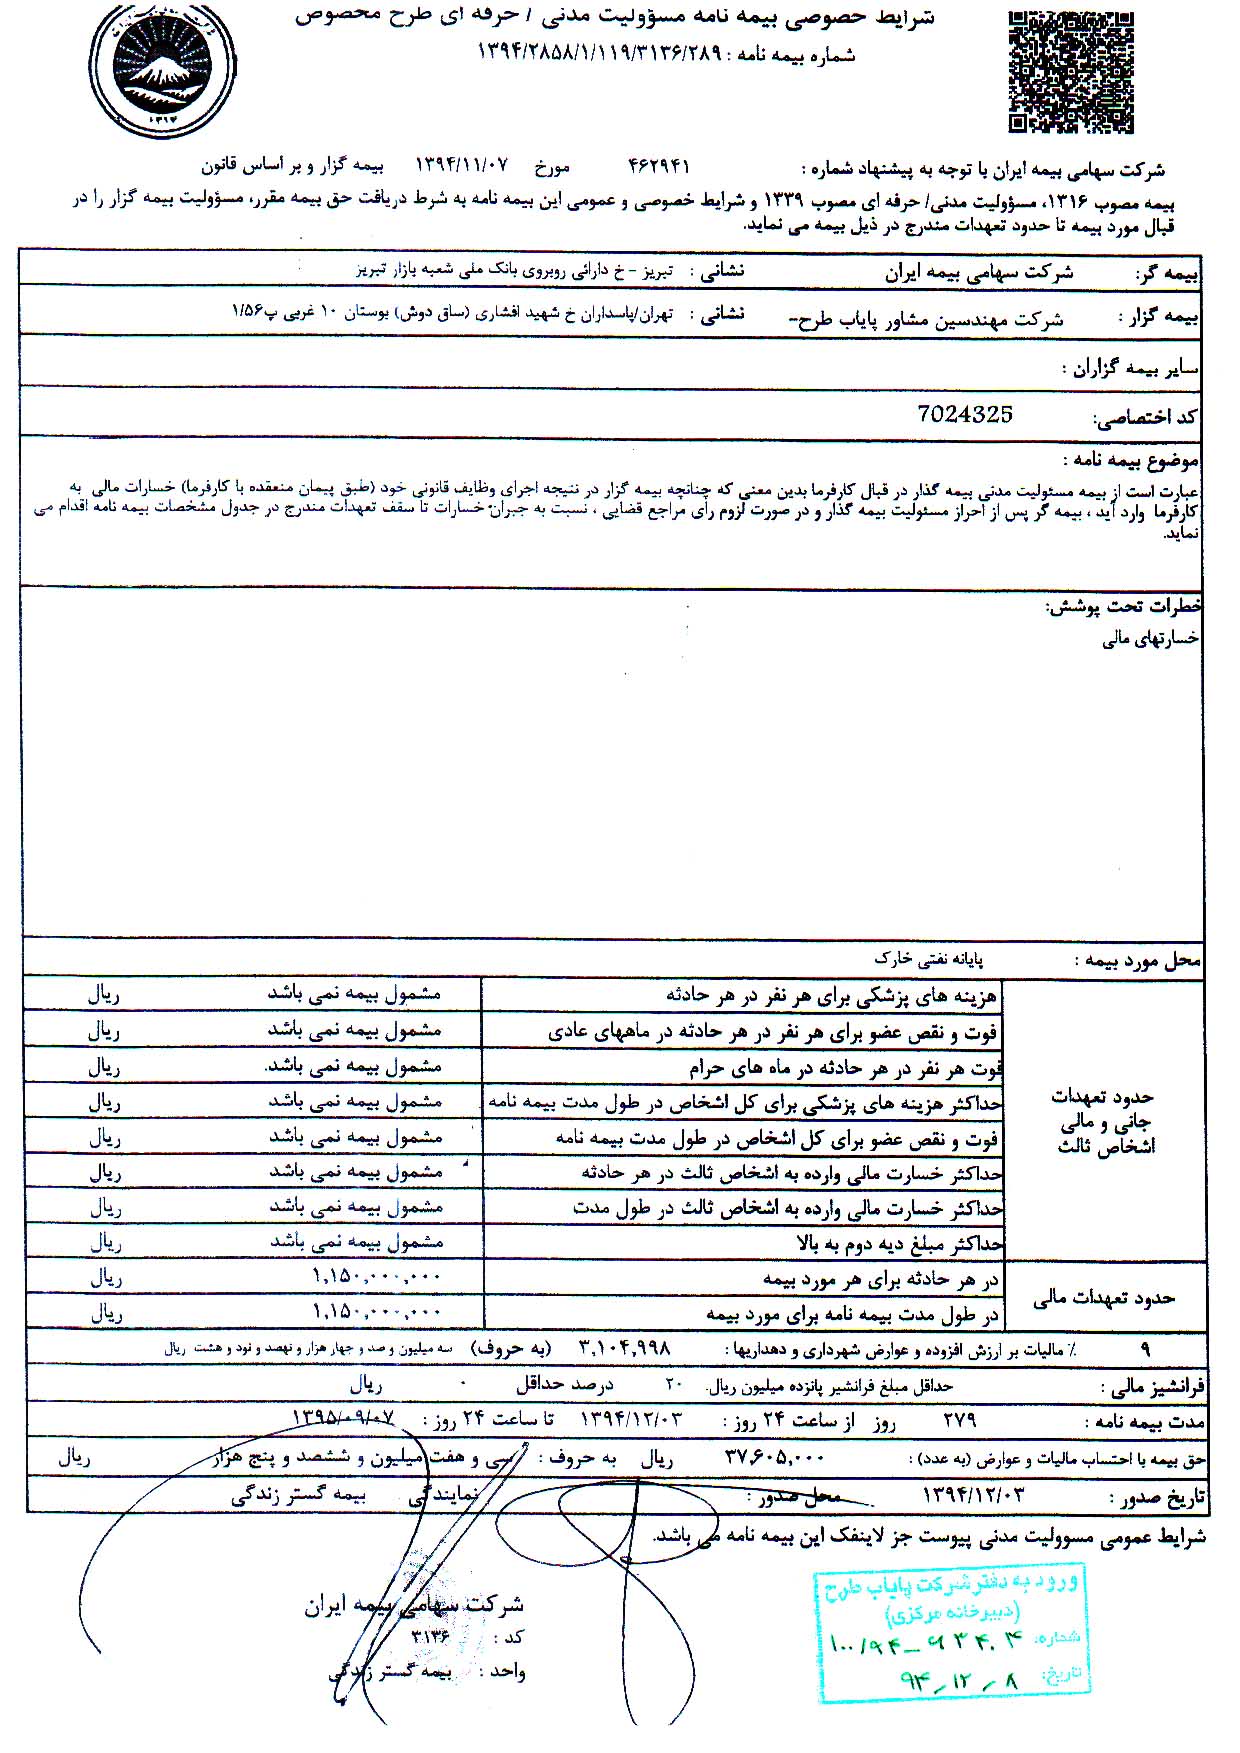 شرایط خصوصی بیمه نامه مسؤولیت مدنی / حرفه ای طرح محصوص
شماره بیمه نامه : ۱۳۹۴/۲۸۵۸/۱/۱۱۹/۳۱۳۶/۲۸۹
۱۳۱۴
شرکت سهامی بیمه ایران با توجه به پیشنهاد شماره : ۴۶۲۹۴۱ مورخ ۱۳۹۴/۱۱/۰۷ بیمه گزار و بر اساس قانون
بیمه مصوب ۱۳۱۶، مسؤولیت مدنی/ حرفه ای مصوب ۱۳۳۹ و شرایط خصوصی و عمومی این بیمه نامه به شرط دریافت حق بیمه مقرر، مسؤولیت بیمه گزار را در
قبال مورد بیمه تا حدود تعهدات مندرج در ذیل بیمه می نماید.
بیمه گر: شرکت سهامی بیمه ایران نشانی : تبریز - خ دارائی روبروی بانک ملی شعبه بازار تبریز
بیمه گزار : شرکت مهندسین مشاور پایاب طرح- نشانی : تهران/پاسداران خ شهید افشاری (ساق دوش) بوستان ۱۰ غربی پ۱/۵۶
سایر بیمه گزاران :
کد اختصاصی: 7024325
موضوع بیمه نامه :
عبارت است از بیمه مسئولیت مدنی بیمه گذار در قبال کارفرما بدین معنی که چنانچه بیمه گزار در نتیجه اجرای وظایف قانونی خود (طبق پیمان منعقده با کارفرما) خسارات مالی به
کارفرما وارد آید ، بیمه گر پس از احراز مسئولیت بیمه گذار و در صورت لزوم رأی مراجع قضایی ، نسبت به جبران خسارات تا سقف تعهدات مندرج در جدول مشخصات بیمه نامه اقدام می
نماید.
خطرات تحت پوشش:
خسارتهای مالی
محل مورد بیمه : پایانه نفتی خارک
حدود تعهدات جانی و مالی اشخاص ثالث
هزینه های پزشکی برای هر نفر در هر حادثه مشمول بیمه نمی باشد ریال
فوت و نقص عضو برای هر نفر در هر حادثه در ماههای عادی مشمول بیمه نمی باشد ریال
فوت هر نفر در هر حادثه در ماه های حرام مشمول بیمه نمی باشد. ریال
حداکثر هزینه های پزشکی برای کل اشخاص در طول مدت بیمه نامه مشمول بیمه نمی باشد ریال
فوت و نقص عضو برای کل اشخاص در طول مدت بیمه نامه مشمول بیمه نمی باشد ریال
حداکثر خسارت مالی وارده به اشخاص ثالث در هر حادثه مشمول بیمه نمی باشد ریال
حداکثر خسارت مالی وارده به اشخاص ثالث در طول مدت مشمول بیمه نمی باشد ریال
حداکثر مبلغ دیه دوم به بالا مشمول بیمه نمی باشد ریال
حدود تعهدات مالی
در هر حادثه برای هر مورد بیمه ۱,۱۵۰,۰۰۰,۰۰۰ ریال
در طول مدت بیمه نامه برای مورد بیمه ۱,۱۵۰,۰۰۰,۰۰۰ ریال
۹ ٪ مالیات بر ارزش افزوده و عوارض شهرداری و دهداریها : ۳,۱۰۴,۹۹۸ (به حروف) سه میلیون و صد و چهار هزار و نهصد و نود و هشت ریال
فرانشیز مالی : حداقل مبلغ فرانشیر پانزده میلیون ریال. ۲۰ درصد حداقل ۰ ریال
مدت بیمه نامه : ۲۷۹ روز از ساعت ۲۴ روز : ۱۳۹۴/۱۲/۰۳ تا ساعت ۲۴ روز : ۱۳۹۵/۰۹/۰۷
حق بیمه با احتساب مالیات و عوارض (به عدد) : ۳۷,۶۰۵,۰۰۰ ریال به حروف : سی و هفت میلیون و ششصد و پنج هزار ریال
تاریخ صدور : ۱۳۹۴/۱۲/۰۳ محل صدور : نمایندگی بیمه گستر زندگی
شرایط عمومی مسوولیت مدنی پیوست جز لاینفک این بیمه نامه می باشد.
شرکت سهامی بیمه ایران
کد : ۳۱۳۶
واحد : بیمه گستر زندگی
ورود به دفتر شرکت پایاب طرح
(دبیرخانه مرکزی)
شماره: ۱۰۰/۹۴-۹۳۴۰۴
تاریخ: ۹۴/۱۲/۸